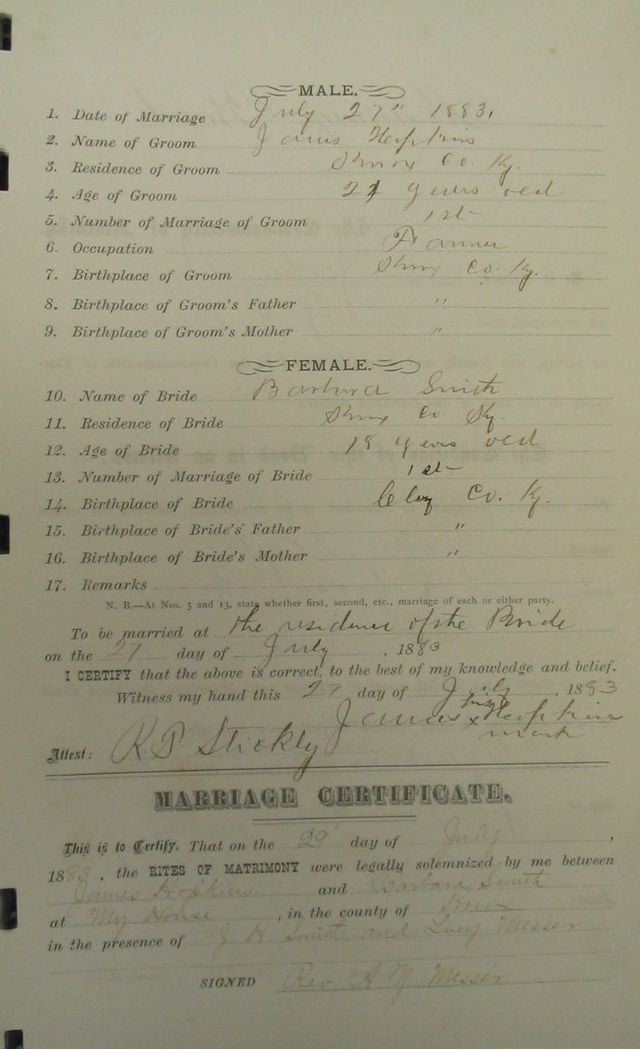 MALE.
1. Date of Marriage July 27" 1883.
2. Name of Groom James Hopkins
3. Residence of Groom Knox Co. Ky.
4. Age of Groom 21 years old
5. Number of Marriage of Groom 1st
6. Occupation Farmer
7. Birthplace of Groom Knox Co. Ky.
8. Birthplace of Groom's Father "
9. Birthplace of Groom's Mother "
FEMALE.
10. Name of Bride Barbara Smith
11. Residence of Bride Knox Co Ky.
12. Age of Bride 18 years old
13. Number of Marriage of Bride 1st
14. Birthplace of Bride Clay Co. Ky.
15. Birthplace of Bride's Father "
16. Birthplace of Bride's Mother "
17. Remarks
N. B.—At Nos. 5 and 13, state whether first, second, etc., marriage of each or either party.
To be married at the residence of the Bride
on the 27 day of July, 1883
I CERTIFY that the above is correct, to the best of my knowledge and belief.
Witness my hand this 27 day of July, 1883
James his x Hopkins
mark
Attest: R. P. Stickly
MARRIAGE CERTIFICATE.
This is to Certify, That on the 29 day of July,
1883, the RITES OF MATRIMONY were legally solemnized by me between
James Hopkins and Barbara Smith
at My House, in the county of Knox
in the presence of J H Smith and Lucy Messer
SIGNED Rev A Messer